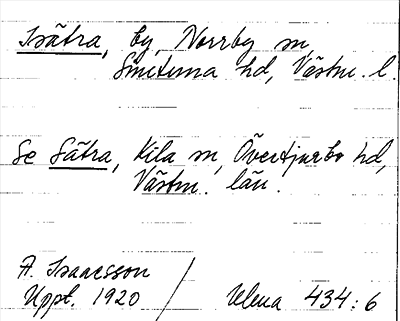 Isätra, by, Norrby sn,
Simtuna hd, Västm. l.
Se Sätra, Kila sn, Övertjurbo hd,
Västm. län.
A. Isaacsson
Uppt. 1920 / Ulma 434:6